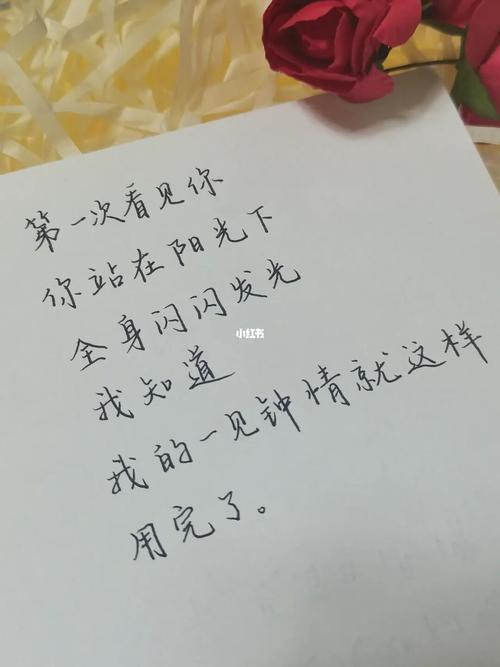 第一次看见你
你站在阳光下
全身闪闪发光
小红书
我知道
我的一见钟情就这样
用完了。